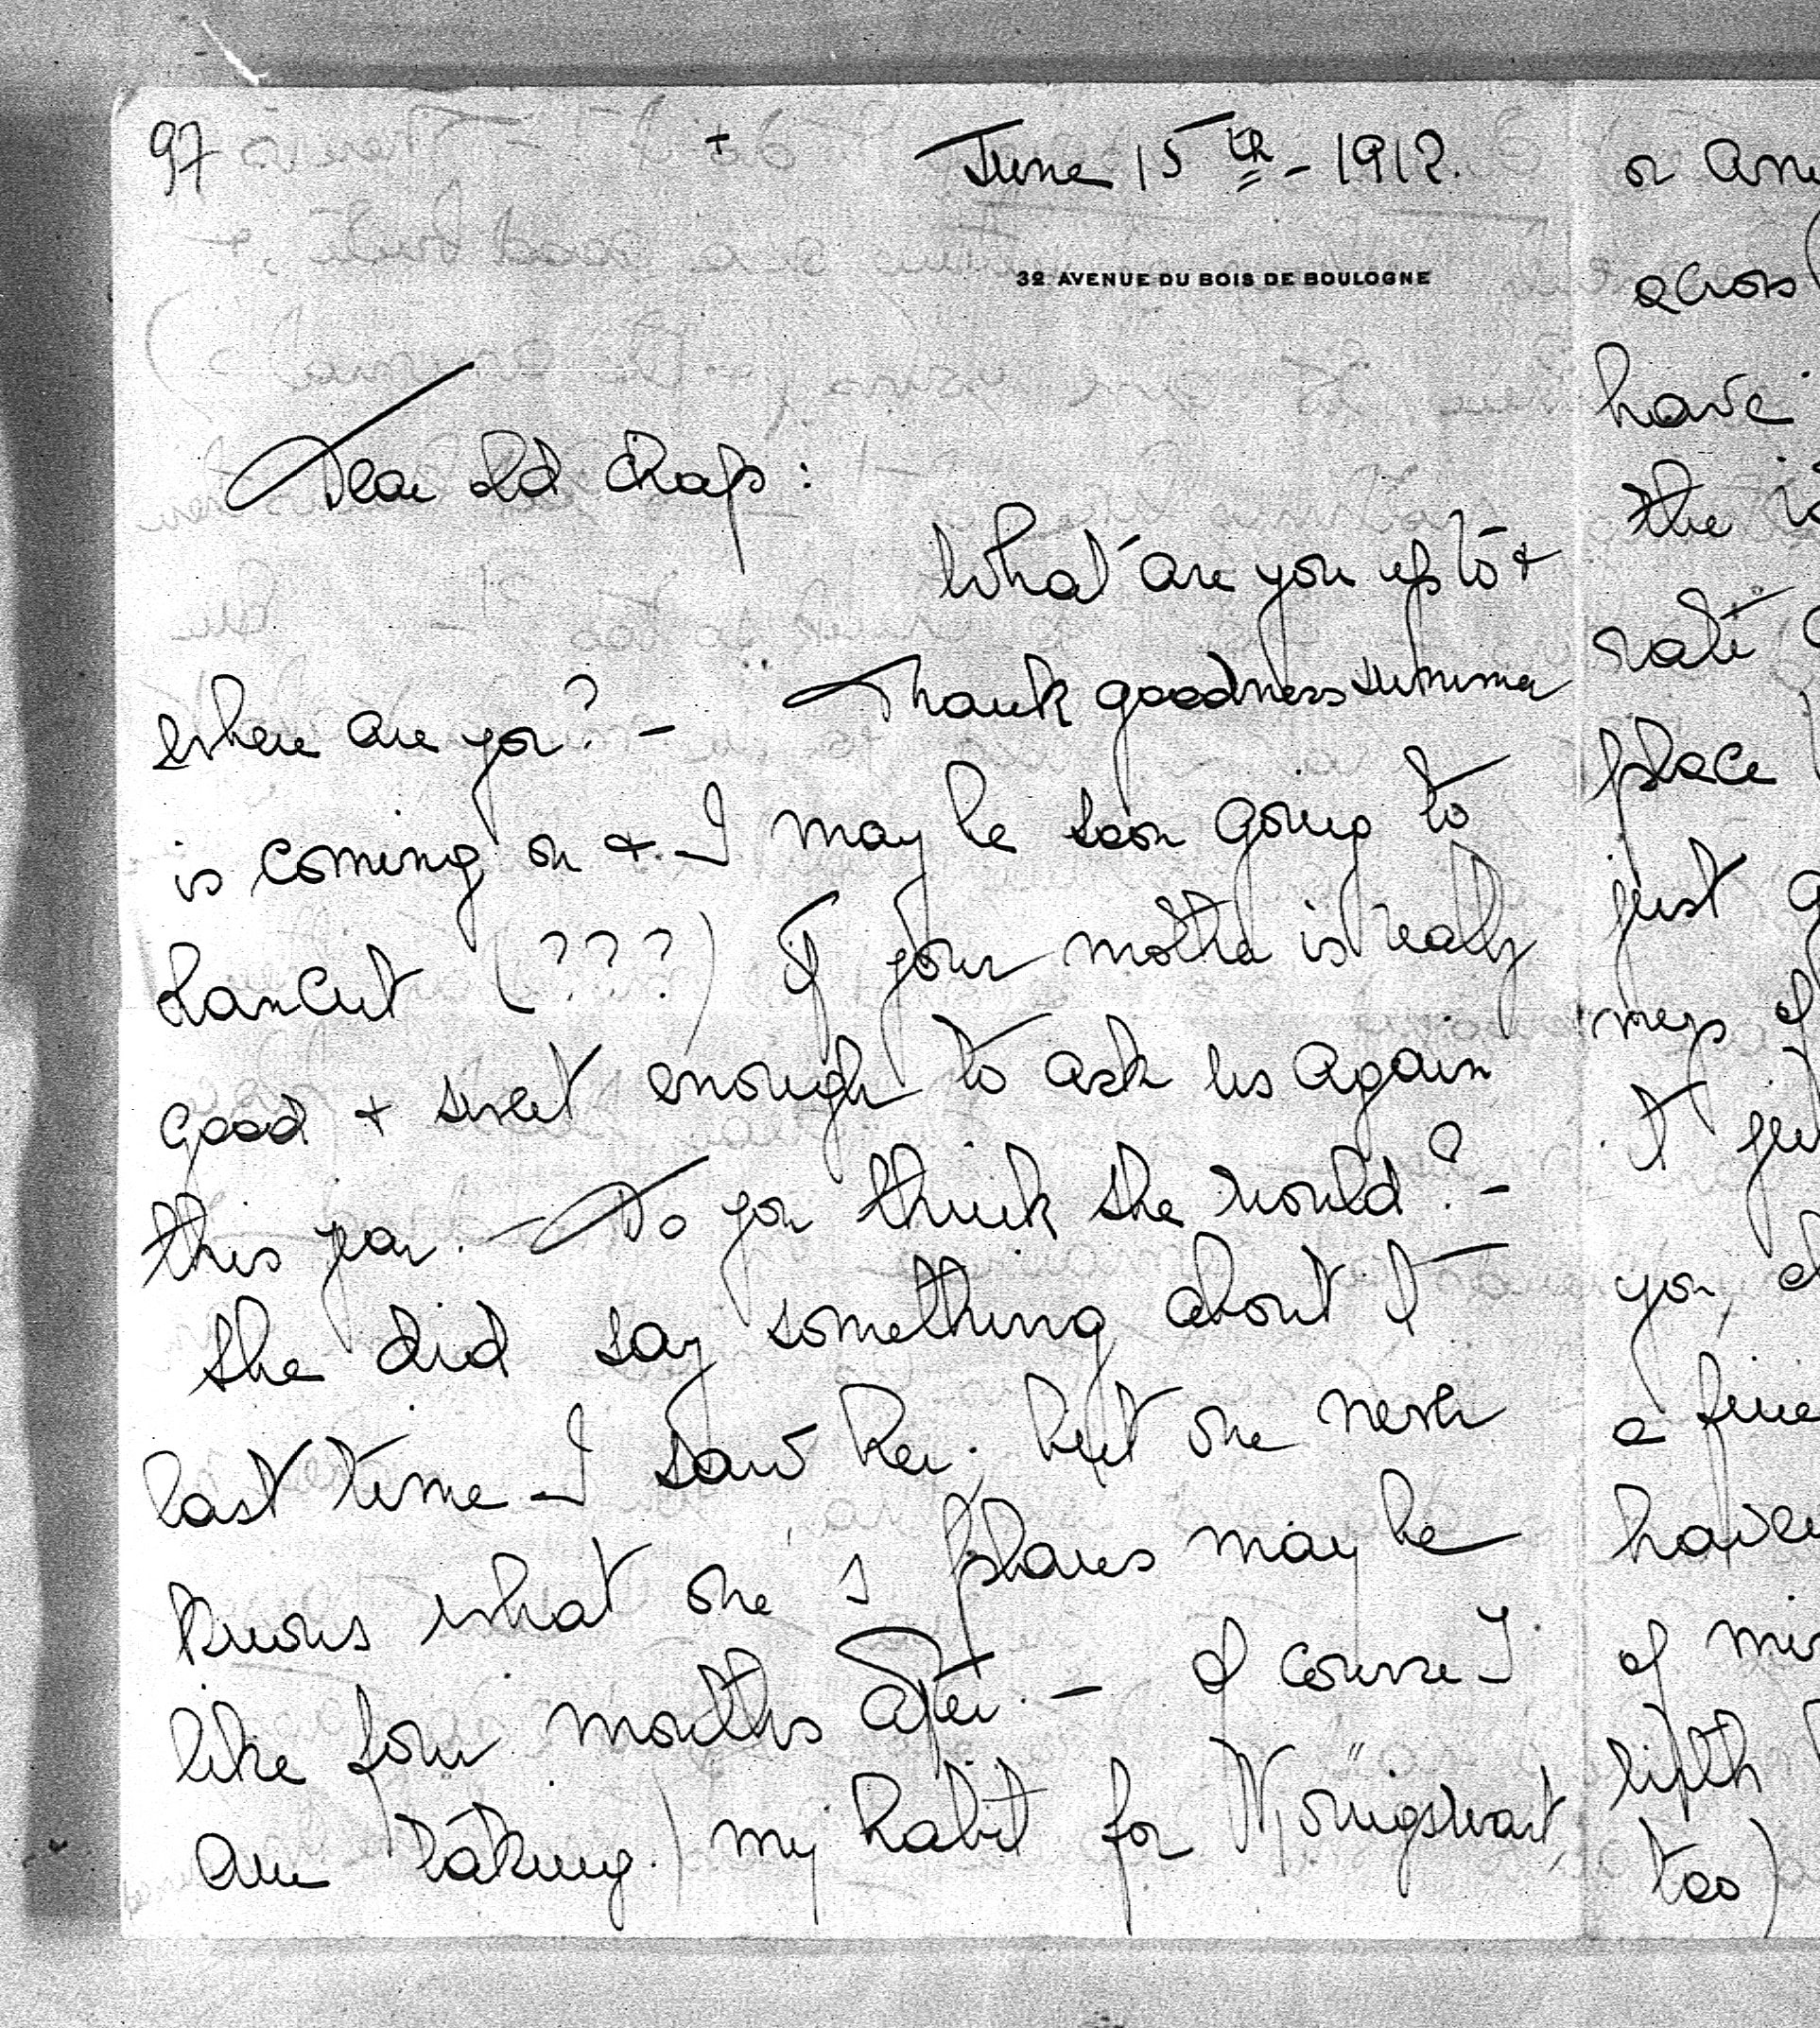 97 + June 15th - 1912.
32. AVENUE DU BOIS DE BOULOGNE
Dear old chap:
What are you up to &
where are you? - Thank goodness summer
is coming on & I may be soon going to
Lancut (???) if your mother is really
good & sweet enough to ask us again
this year. - Do you think she would? -
She did say something about it
last time I saw her; but one never
knows what one's plans may be
like four months after. - Of course I
am taking my habit for Königswart,
or
across (
have
the
rate
place
just
of
It
you,
a fine
of
too)